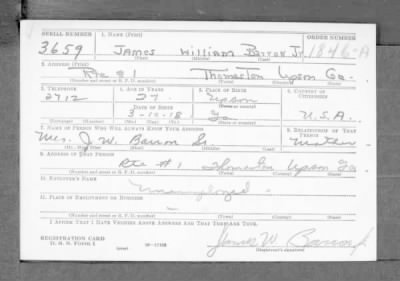 SERIAL NUMBER 1. NAME (Print) ORDER NUMBER
3659 JAMES William Barron Jr. 1846-A
(First) (Middle) (Last)
2. ADDRESS (Print)
Rte # 1 Thomaston Upson Ga.
(Number and street or R. F. D. number) (Town) (County) (State)
3. TELEPHONE 4. AGE IN YEARS 5. PLACE OF BIRTH 6. COUNTRY OF CITIZENSHIP
2712 Upson
DATE OF BIRTH
3-10-18 Ga U.S.A.
(Exchange) (Number) (Mo.) (Day) (Yr.) (State or country)
7. NAME OF PERSON WHO WILL ALWAYS KNOW YOUR ADDRESS 8. RELATIONSHIP OF THAT PERSON
Mrs. J. W. Barron Sr. Mother
(Mr., Mrs., Miss) (First) (Middle) (Last)
9. ADDRESS OF THAT PERSON
Rte #1 Thomaston Upson Ga
(Number and street or R. F. D. number) (Town) (County) (State)
10. EMPLOYER'S NAME
Unemployed
11. PLACE OF EMPLOYMENT OR BUSINESS
(Number and street or R. F. D. number) (Town) (County) (State)
I AFFIRM THAT I HAVE VERIFIED ABOVE ANSWERS AND THAT THEY ARE TRUE.
REGISTRATION CARD
D. S. S. FORM 1 (over) 16-17105 James W Barron Jr
(Registrant's signature)